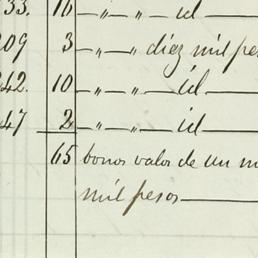 33. 16 " " id
209 3 " " diez mil pes
242. 10 " " id
47 2 " " id
65 bonos valor de un m
mil pesos